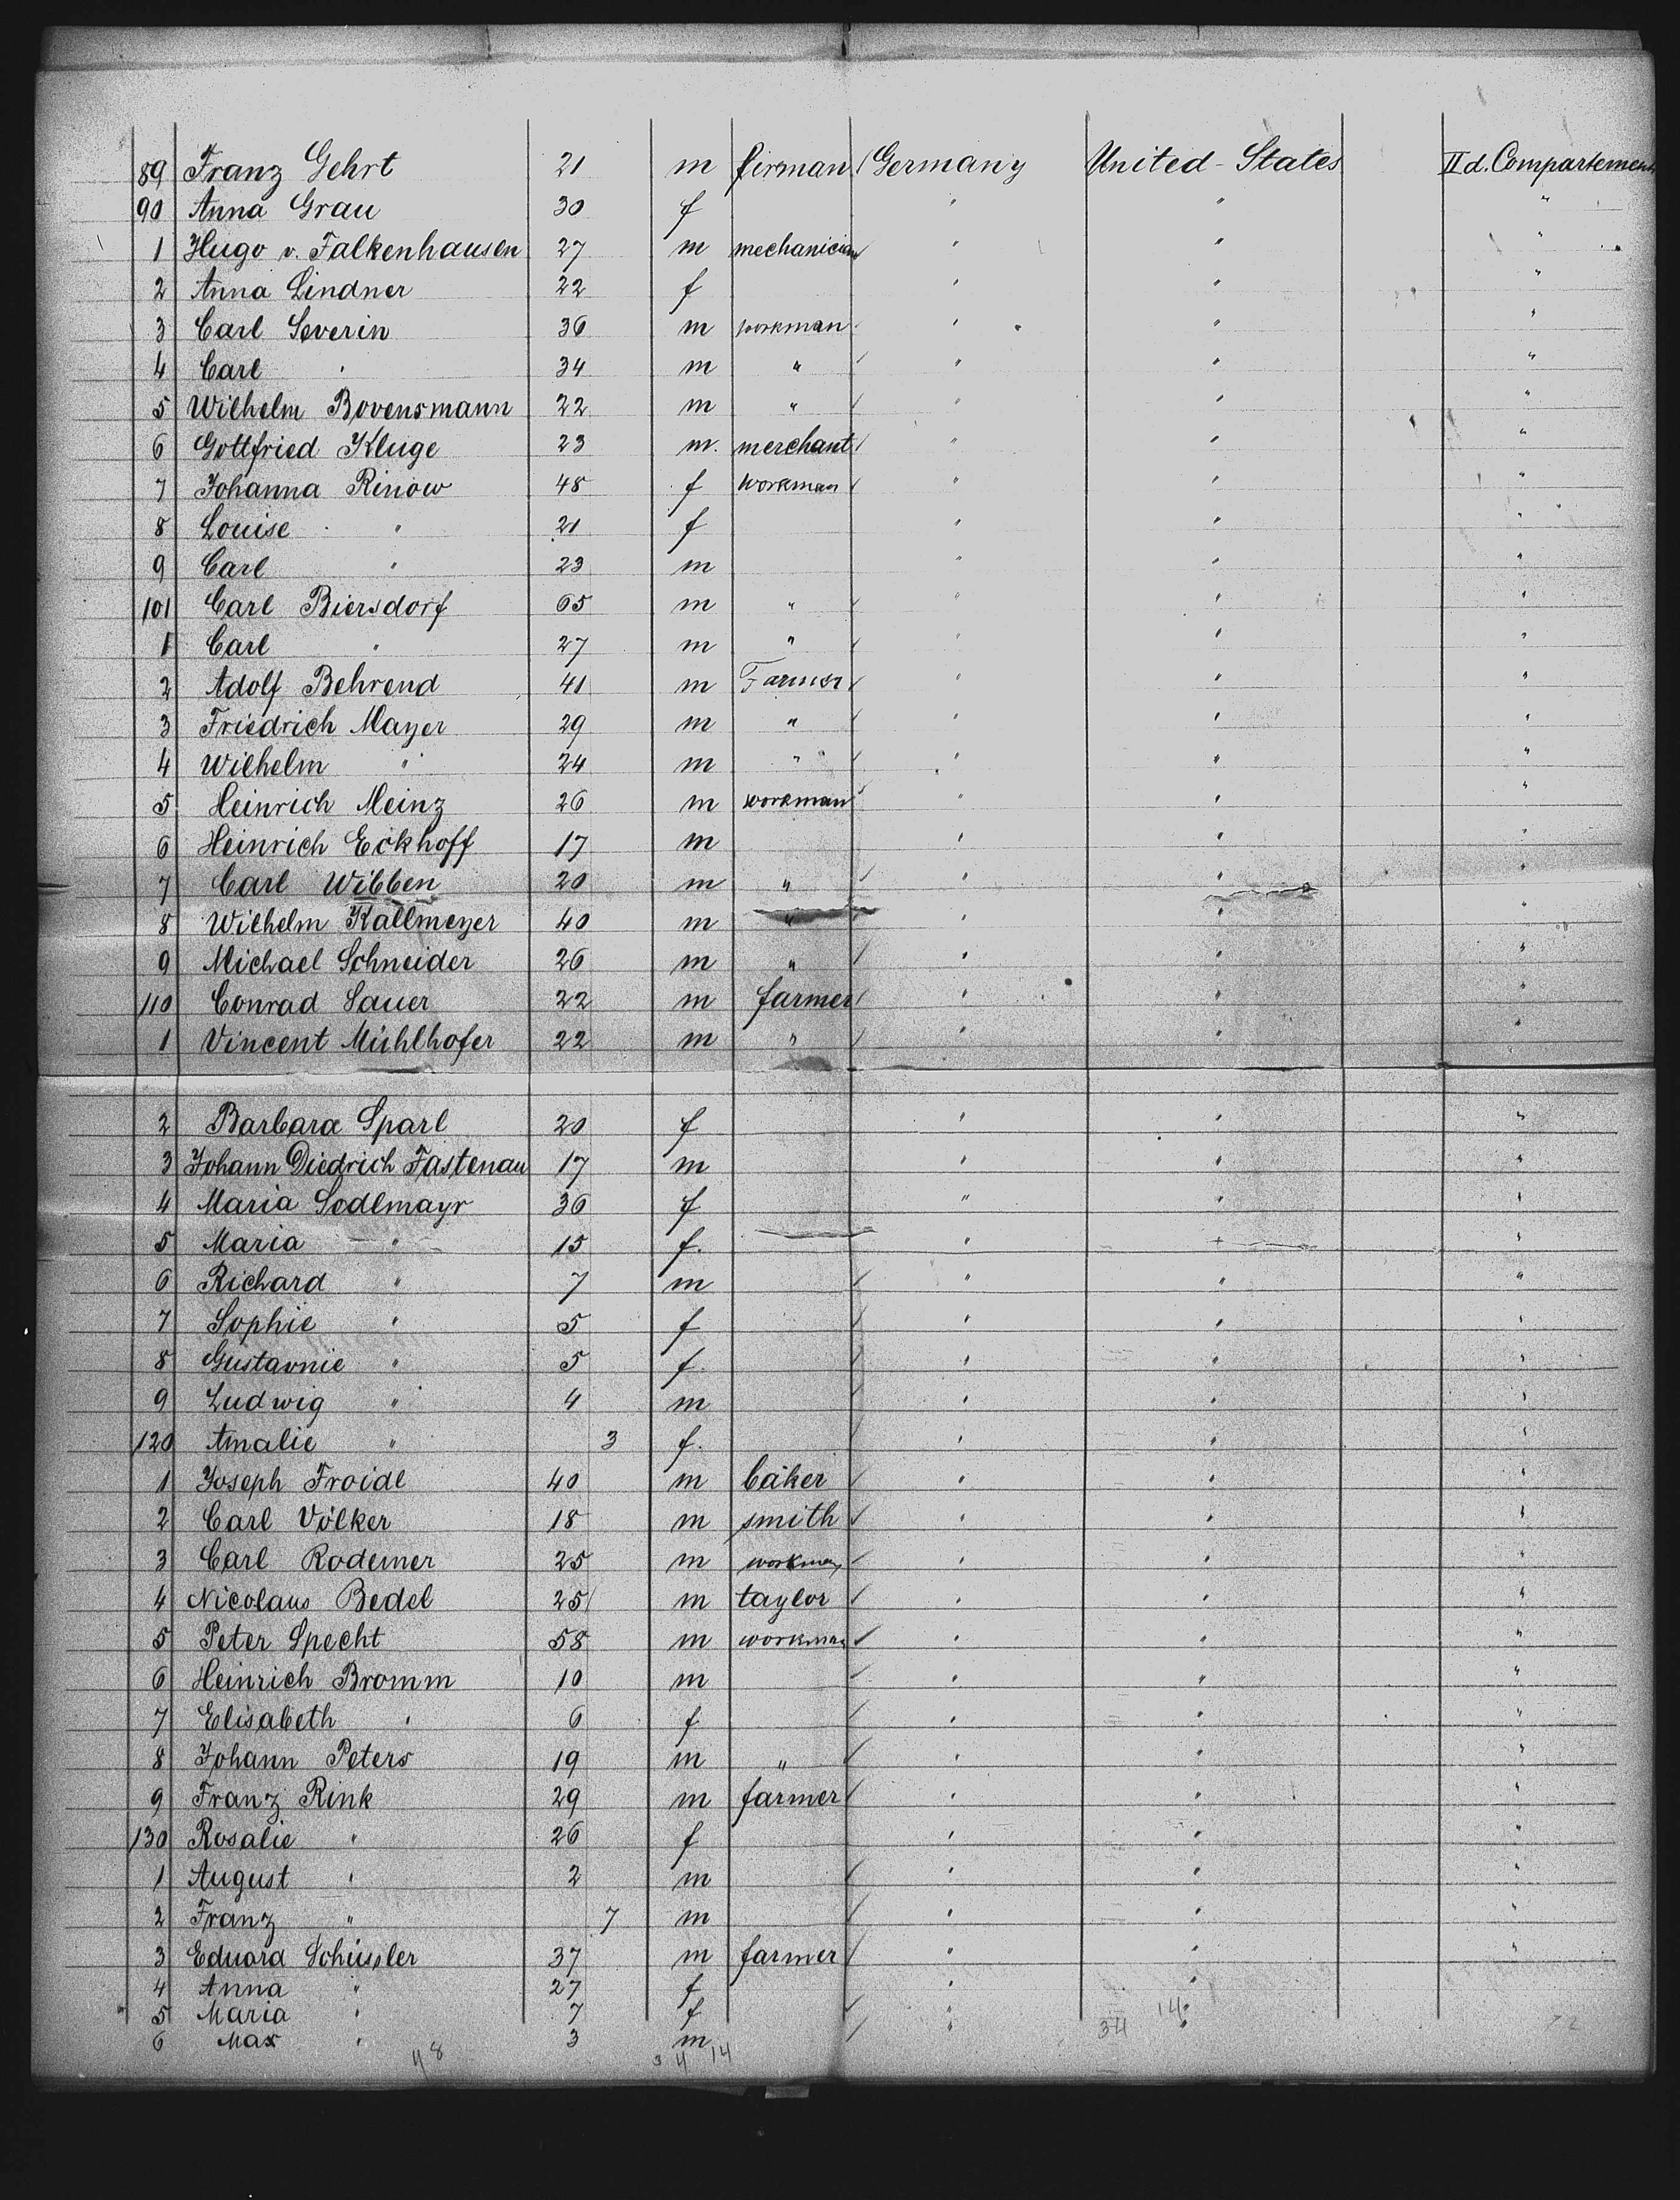 89 Franz Gehrt 21 m firman Germany United-States IId. Compartement
90 Anna Grau 30 f " " "
1 Hugo v. Falkenhausen 27 m mechanician " " "
2 Anna Lindner 22 f " " "
3 Carl Severin 36 m workman " " "
4 Carl " 34 m " " " "
5 Wilhelm Bovensmann 22 m " " " "
6 Gottfried Kluge 23 m. merchant " " "
7 Johanna Rinow 48 f workman " " "
8 Louise " 21 f " " "
9 Carl " 23 m " " "
101 Carl Biersdorf 65 m " " " "
1 Carl " 27 m " " " "
2 Adolf Behrend 41 m Farmer " " "
3 Friedrich Mayer 29 m " " " "
4 Wilhelm " 24 m " " " "
5 Heinrich Meinz 26 m workman " " "
6 Heinrich Eckhoff 17 m " " "
7 Carl Wibben 20 m " " " "
8 Wilhelm Kallmeyer 40 m " " " "
9 Michael Schneider 26 m " " " "
110 Conrad Sauer 22 m farmer " " "
1 Vincent Mühlhofer 22 m " " " "
2 Barbara Sparl 20 f " " "
3 Johann Diedrich Fastenau 17 m " " "
4 Maria Sedlmayr 36 f " " "
5 Maria " 15 f. " " "
6 Richard " 7 m " " "
7 Sophie " 5 f " " "
8 Gustavnie " 5 f. " " "
9 Ludwig " 4 m " " "
120 Amalie " 3 f. " " "
1 Joseph Froidl 40 m baker " " "
2 Carl Völker 18 m smith " " "
3 Carl Rodemer 25 m workman " " "
4 Nicolaus Bedel 25 m taylor " " "
5 Peter Specht 58 m workman " " "
6 Heinrich Bromm 10 m " " "
7 Elisabeth " 6 f " " "
8 Johann Peters 19 m " " " "
9 Franz Rink 29 m farmer " " "
130 Rosalie " 26 f " " "
1 August " 2 m " " "
2 Franz " 7 m " " "
3 Eduard Schüssler 37 m farmer " " "
4 Anna " 27 f " "
5 Maria " 7 f " " 14
6 Max " 3 m " 34 "
48 34 14